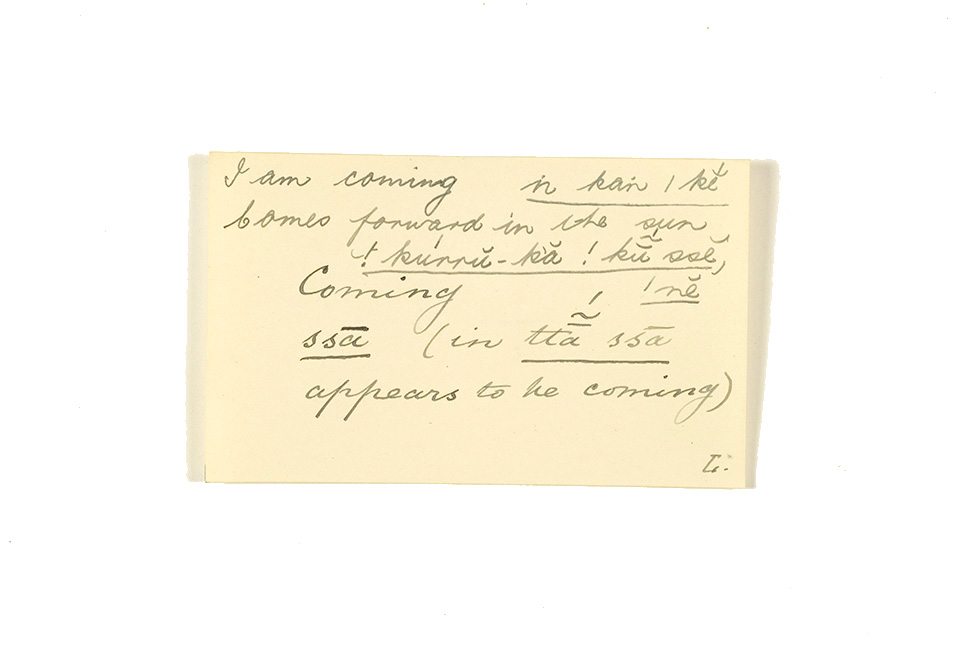 I am coming ń kań | kĕ́
Comes forward in the sun
! kúrrŭ-kă ! kŭ̃́ ssĕ́,
Coming | nĕ̆
ssā (in ttā̃́ ssā
appears to be coming)
L.